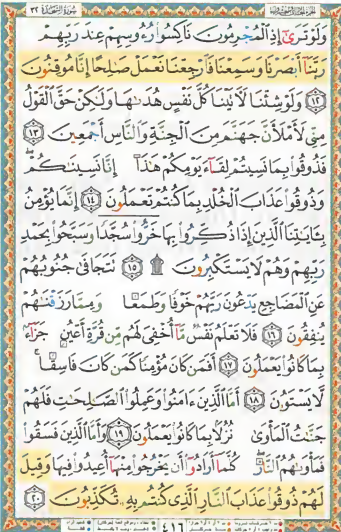 سُورَةُ السَّجْدَةِ ٣٢
وَلَوْ تَرَىٰٓ إِذِ ٱلْمُجْرِمُونَ نَاكِسُوا۟ رُءُوسِهِمْ عِندَ رَبِّهِمْ
رَبَّنَآ أَبْصَرْنَا وَسَمِعْنَا فَٱرْجِعْنَا نَعْمَلْ صَٰلِحًا إِنَّا مُوقِنُونَ
١٢ وَلَوْ شِئْنَا لَءَاتَيْنَا كُلَّ نَفْسٍ هُدَىٰهَا وَلَٰكِنْ حَقَّ ٱلْقَوْلُ
مِنِّى لَأَمْلَأَنَّ جَهَنَّمَ مِنَ ٱلْجِنَّةِ وَٱلنَّاسِ أَجْمَعِينَ ١٣
فَذُوقُوا۟ بِمَا نَسِيتُمْ لِقَآءَ يَوْمِكُمْ هَٰذَآ إِنَّا نَسِينَٰكُمْ ۖ
وَذُوقُوا۟ عَذَابَ ٱلْخُلْدِ بِمَا كُنتُمْ تَعْمَلُونَ ١٤ إِنَّمَا يُؤْمِنُ
بِـَٔايَٰتِنَا ٱلَّذِينَ إِذَا ذُكِّرُوا۟ بِهَا خَرُّوا۟ سُجَّدًا وَسَبَّحُوا۟ بِحَمْدِ
رَبِّهِمْ وَهُمْ لَا يَسْتَكْبِرُونَ ۩ ١٥ تَتَجَافَىٰ جُنُوبُهُمْ
عَنِ ٱلْمَضَاجِعِ يَدْعُونَ رَبَّهُمْ خَوْفًا وَطَمَعًا وَمِمَّا رَزَقْنَٰهُمْ
يُنفِقُونَ ١٦ فَلَا تَعْلَمُ نَفْسٌ مَّآ أُخْفِىَ لَهُم مِّن قُرَّةِ أَعْيُنٍ جَزَآءًۢ
بِمَا كَانُوا۟ يَعْمَلُونَ ١٧ أَفَمَن كَانَ مُؤْمِنًا كَمَن كَانَ فَاسِقًا ۚ
لَّا يَسْتَوُۥنَ ١٨ أَمَّا ٱلَّذِينَ ءَامَنُوا۟ وَعَمِلُوا۟ ٱلصَّٰلِحَٰتِ فَلَهُمْ
جَنَّٰتُ ٱلْمَأْوَىٰ نُزُلًۢا بِمَا كَانُوا۟ يَعْمَلُونَ ١٩ وَأَمَّا ٱلَّذِينَ فَسَقُوا۟
فَمَأْوَىٰهُمُ ٱلنَّارُ ۖ كُلَّمَآ أَرَادُوٓا۟ أَن يَخْرُجُوا۟ مِنْهَآ أُعِيدُوا۟ فِيهَا وَقِيلَ
لَهُمْ ذُوقُوا۟ عَذَابَ ٱلنَّارِ ٱلَّذِى كُنتُم بِهِۦ تُكَذِّبُونَ ٢٠
٤١٦